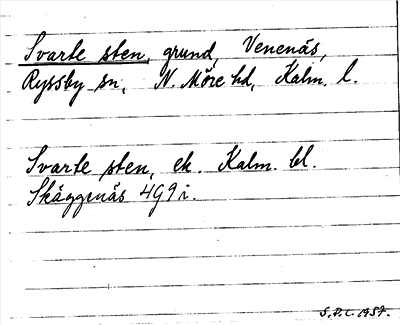 Svarte sten, grund, Venenäs,
Ryssby sn, N. Möre hd, Kalm. l.
Svarte sten, ek. Kalm. bl.
Skäggenäs 4G9i.
S.D.L. 1957.